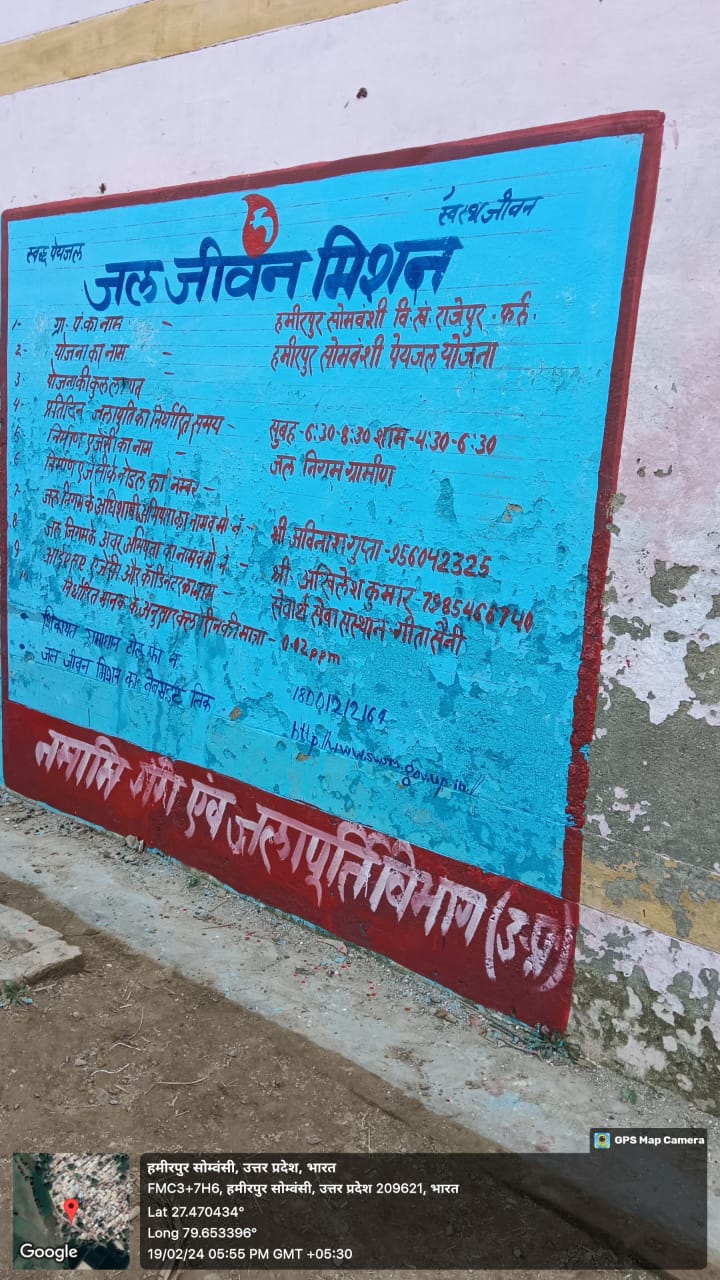 स्वच्छ पेयजल
स्वस्थ जीवन
जल जीवन मिशन
1- ग्रा. पं. का नाम - हमीरपुर सोमवंशी वि. खं. राजेपुर - फर्रु.
2- योजना का नाम - हमीरपुर सोमवंशी पेयजल योजना
3- योजना की कुल लागत
4- प्रतिदिन जलापूर्ति का निर्धारित समय - सुबह - 6:30-8:30 शाम - 4:30-6:30
5 निर्माण एजेंसी का नाम - जल निगम ग्रामीण
6 निर्माण एजेंसी के नोडल का नम्बर -
7 जल निगम के अधिशाषी अभियंता का नाम व मो नं - श्री अविनाश गुप्ता - 956042325
8 जल निगम के अवर अभियंता का नाम व मो नं - श्री अखिलेश कुमार 7985466740
9 आईएसए एजेंसी और कॉर्डिनेटर का नाम - सेवार्थ सेवा संस्थान - गीता सैनी
10 निर्धारित मानक के अनुसार क्लोरीन की मात्रा - 0.02 ppm
• शिकायत समाधान टोल फ्री नं. 18001212164
• जल जीवन मिशन का वेबसाइट लिंक http://www.swsm.gov.up.in./
नमामि गंगे एवं जलापूर्ति विभाग (उ.प्र)
GPS Map Camera
हमीरपुर सोम्वंसी, उत्तर प्रदेश, भारत
FMC3+7H6, हमीरपुर सोम्वंसी, उत्तर प्रदेश 209621, भारत
Lat 27.470434°
Long 79.653396°
19/02/24 05:55 PM GMT +05:30
Google